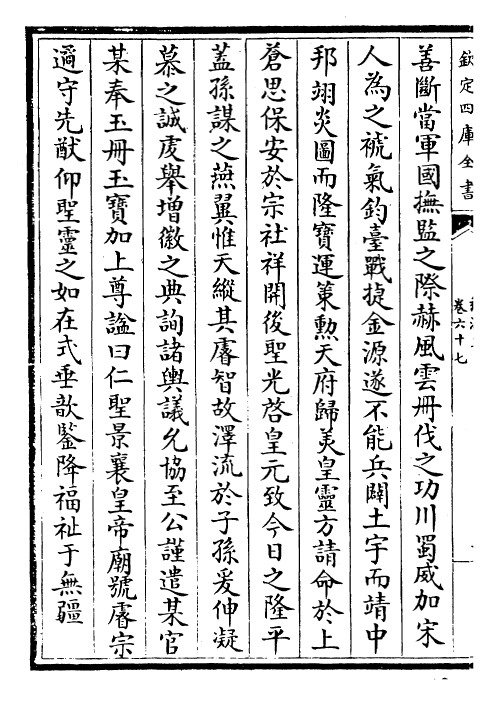 欽定四庫全書
卷六十七
善斷當軍國撫監之際赫風雲冊伐之功川蜀威加宋
人為之褫氣鈞臺戰捷金源遂不能兵闢土宇而靖中
邦翊炎圖而隆寶運策勲天府歸美皇靈方請命於上
蒼思保安於宗社祥開後聖光啓皇元致今日之隆平
蓋孫謀之燕翼惟天縱其睿智故澤流於子孫爰伸凝
慕之誠虔舉增徽之典詢諸輿議允協至公謹遣某官
某奉玉冊玉寶加上尊謚曰仁聖景襄皇帝廟號睿宗
遹守先猷仰聖靈之如在式垂歆鑒降福祉于無疆